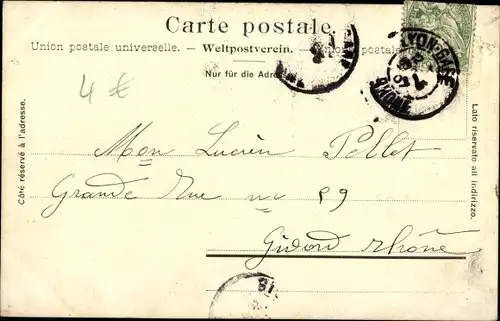 Carte postale.
Union postale universelle. – Weltpostverein. – Union postale
Nur für die Adresse
4 €
LYON-GARE
RHONE
Côté réservé à l'adresse.
Lato riservato all indirizzo.
Mon Lucien Pollet
Grande Rue no 59
Givord Rhône